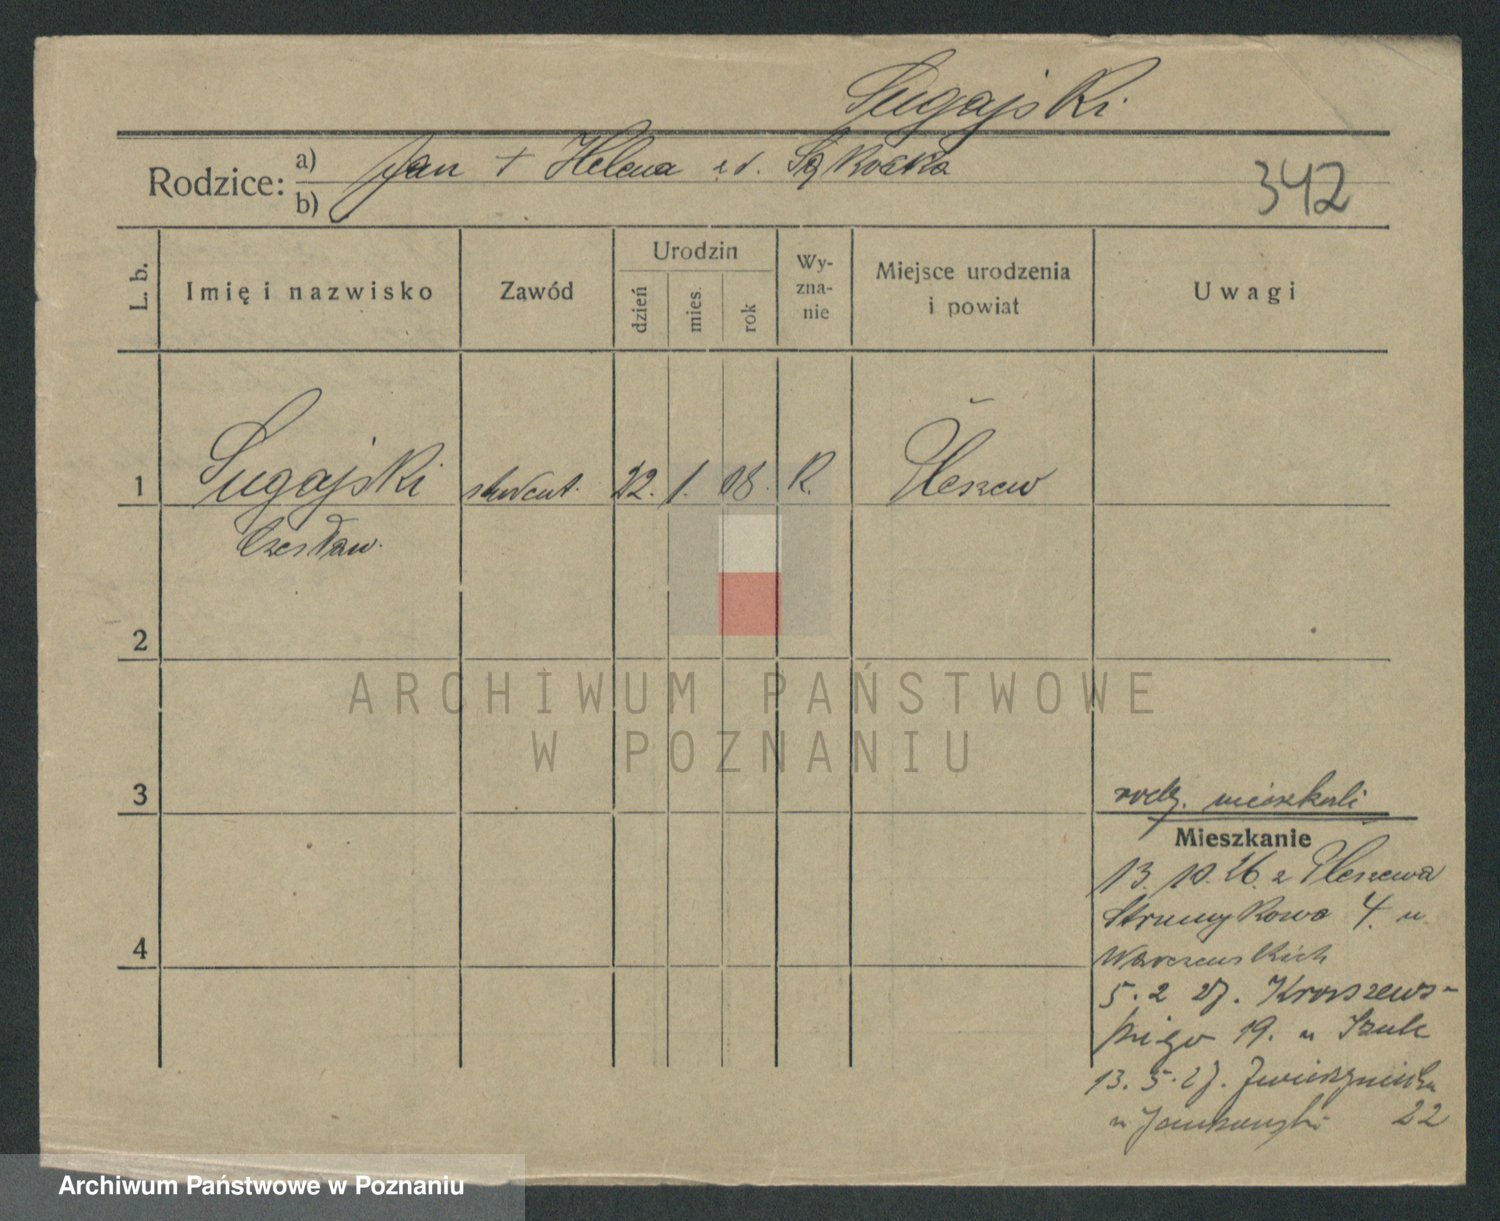 Sugajski
Rodzice: a) Jan + Helena
b)
342
L. b.
Imię i nazwisko
Zawód
Urodzin
dzień
mies.
rok
Wy-
zna-
nie
Miejsce urodzenia
i powiat
Uwagi
1 Sugajski student. 22. 1. 08. R. Pleszew
Czesław.
2
ARCHIWUM PAŃSTWOWE
W POZNANIU
3
rodz. mieszkali
Mieszkanie
13. 10. 26. z Pleszewa
Strumykowa 4. u
Warszewskich
5. 2 27. Kraszews-
kiego 19. u Szulc
13. 5. 27. Zwierzyniecka
u 22
4
Archiwum Państwowe w Poznaniu